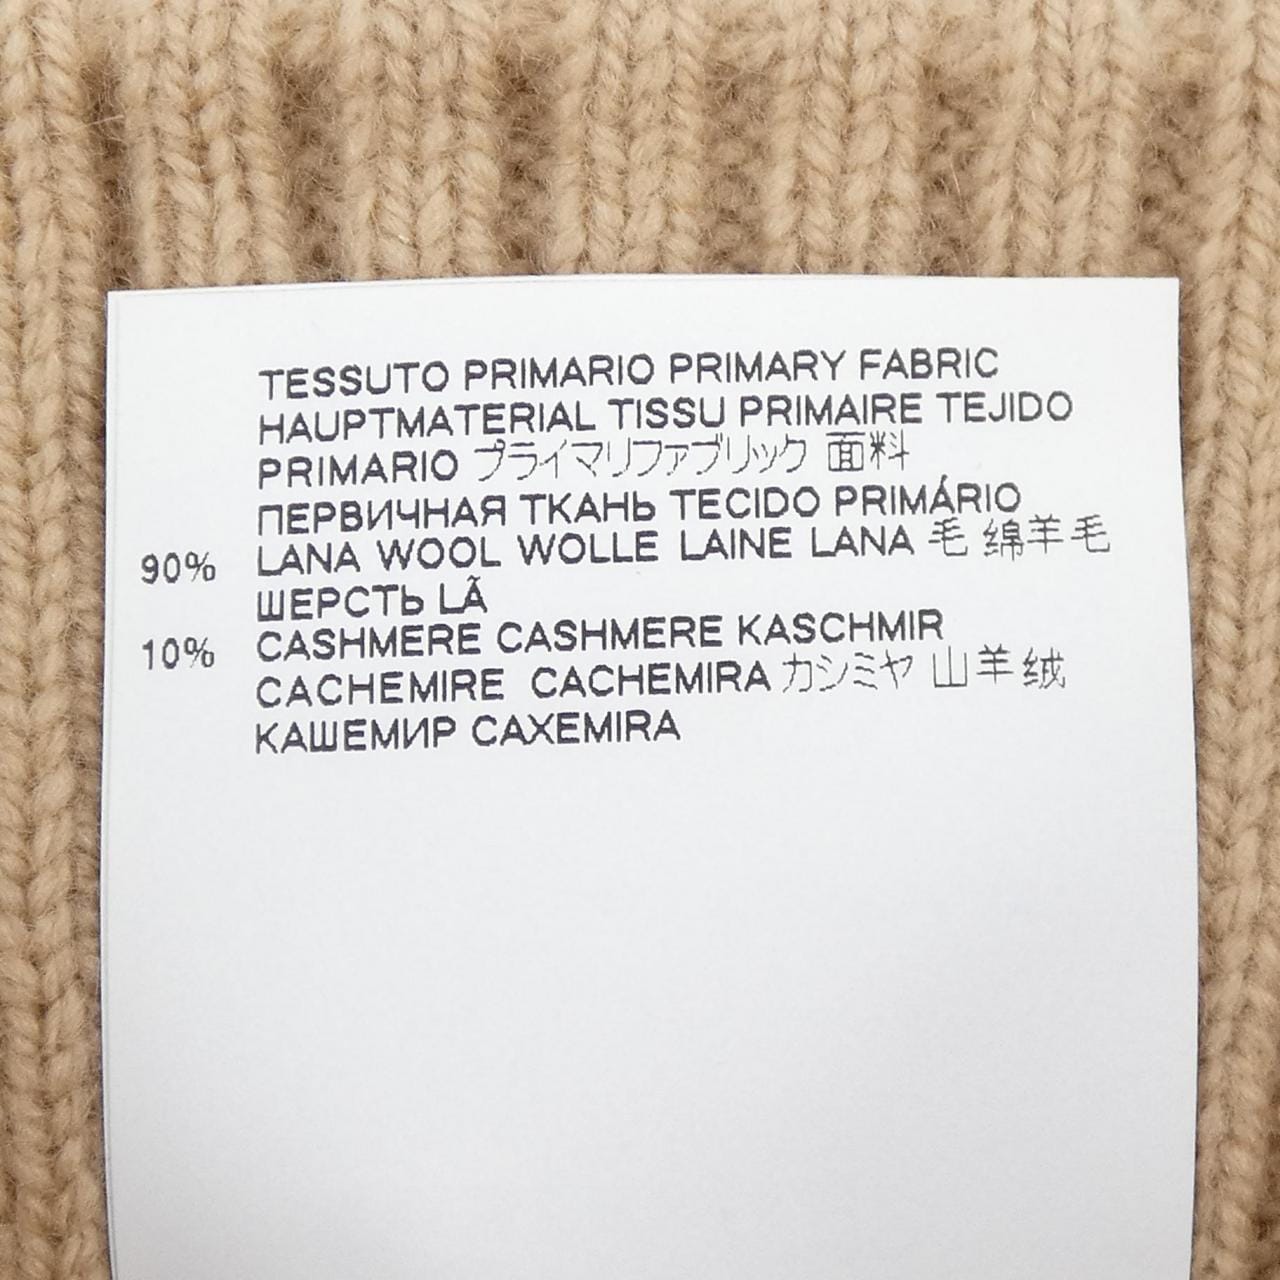 TESSUTO PRIMARIO PRIMARY FABRIC
HAUPTMATERIAL TISSU PRIMAIRE TEJIDO
PRIMARIO プライマリファブリック 面料
ПЕРВИЧНАЯ ТКАНЬ TECIDO PRIMÁRIO
90% LANA WOOL WOLLE LAINE LANA 毛 绵羊毛
ШЕРСТЬ LÃ
10% CASHMERE CASHMERE KASCHMIR
CACHEMIRE CACHEMIRA カシミヤ 山羊绒
КАШЕМИР CAXEMIRA